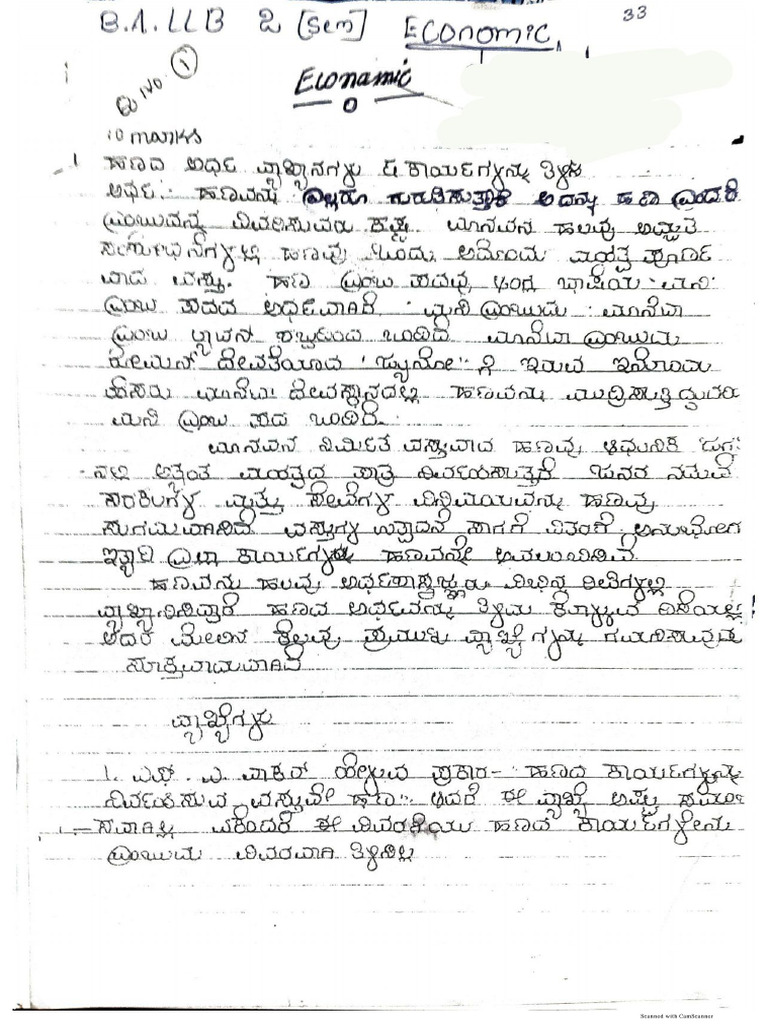 33
B.A. LLB 2 [Sem] Economic
Q No 1
Econamic
10 ಮಾರ್ಕ್ಸ
1 ಹಣದ ಅರ್ಥ ವ್ಯಾಖ್ಯಾನಗಳು & ಕಾರ್ಯಗಳನ್ನು ತಿಳಿಸಿ
ಅರ್ಥ: ಹಣವನ್ನು ಎಲ್ಲರೂ ಗುರುತಿಸುತ್ತಾರೆ ಆದನ್ನು ಹಣ ಎಂದರೆ
ಎಂಬುವನ್ನು ವಿವರಿಸುವುದು ಕಷ್ಟ. ಮಾನವನ ಹಲವು ಅದ್ಭುತ
ಸಂಶೋಧನೆಗಳಲ್ಲಿ ಹಣವು ಒಂದು ಮಹತ್ವ ಪೂರ್ಣ
ವಾದ ವಸ್ತು. ಹಣ ಎಂಬ ಪದವು ಆಂಗ್ಲ ಭಾಷೆಯ ಮನಿ
ಎಂಬ ಪದದ ಅರ್ಥವಾಗಿದೆ. ಮನಿ ಎಂಬುದು ಮಾನೆಟಾ
ಎಂಬ ಲ್ಯಾಟಿನ್ ಶಬ್ದದಿಂದ ಬಂದಿದೆ ಮಾನೆಟಾ ಎಂಬುದು
ರೋಮನ್ ದೇವತೆಯಾದ 'ಜ್ಯುನೋ' ಗೆ ಇರುವ ಇನ್ನೊಂದು
ಹೆಸರು ಮಾನೆಟಾ ದೇವಸ್ಥಾನದಲ್ಲಿ ಹಣವನ್ನು ಮುದ್ರಿಸುತ್ತಿದ್ದುದರಿ
ಮನಿ ಎಂಬ ಪದ ಬಂದಿದೆ.
ಮಾನವನ ನಿರ್ಮಿತ ವಸ್ತುವಾದ ಹಣವು ಆಧುನಿಕ ಜಗ
ನಲ್ಲಿ ಅತ್ಯಂತ ಮಹತ್ವದ ಪಾತ್ರ ನಿರ್ವಹಿಸುತ್ತದೆ ಜನರ ನಡುವೆ
ಸರಕುಗಳ ಮತ್ತು ಸೇವೆಗಳ ವಿನಿಮಯವನ್ನು ಹಣವು
ಸುಗಮವಾಗಿಸಿದೆ ವಸ್ತುಗಳ ಉತ್ಪಾದನೆ ಸಾಗಣೆ ವಿತರಣೆ ಅನುಭೋಗ
ಇತ್ಯಾದಿ ಎಲ್ಲಾ ಕಾರ್ಯಗಳು ಹಣವನ್ನೇ ಅವಲಂಬಿಸಿವೆ
ಹಣವನ್ನು ಹಲವು ಅರ್ಥಶಾಸ್ತ್ರಜ್ಞರು ವಿಭಿನ್ನ ರೀತಿಗಳಲ್ಲಿ
ವ್ಯಾಖ್ಯಾನಿಸಿದ್ದಾರೆ ಹಣದ ಅರ್ಥವನ್ನು ತಿಳಿದು ಕೊಳ್ಳುವ ದಿಸೆಯಲ್ಲಿ
ಅದರ ಮೇಲಿನ ಕೆಲವು ಪ್ರಮುಖ ವ್ಯಾಖ್ಯೆಗಳನ್ನು ಗಮನಿಸುವುದು
ಸೂಕ್ತವಾದುದಾಗಿದೆ
ವ್ಯಾಖ್ಯೆಗಳು
1. ಎಫ್. ಎ. ವಾಕರ್ ಹೇಳುವ ಪ್ರಕಾರ- ಹಣದ ಕಾರ್ಯಗಳನ್ನು
ನಿರ್ವಹಿಸುವ ವಸ್ತುವೇ ಹಣ. ಆದರೆ ಈ ವ್ಯಾಖ್ಯೆ ಅಷ್ಟು
ಸವಾಗಿಲ್ಲ ಏಕೆಂದರೆ ಈ ವಿವರಣೆಯು ಹಣದ ಕಾರ್ಯಗಳೇನು
ಎಂಬುದು ವಿವರವಾಗಿ ತಿಳಿಸಿಲ್ಲ
Scanned with CamScanner